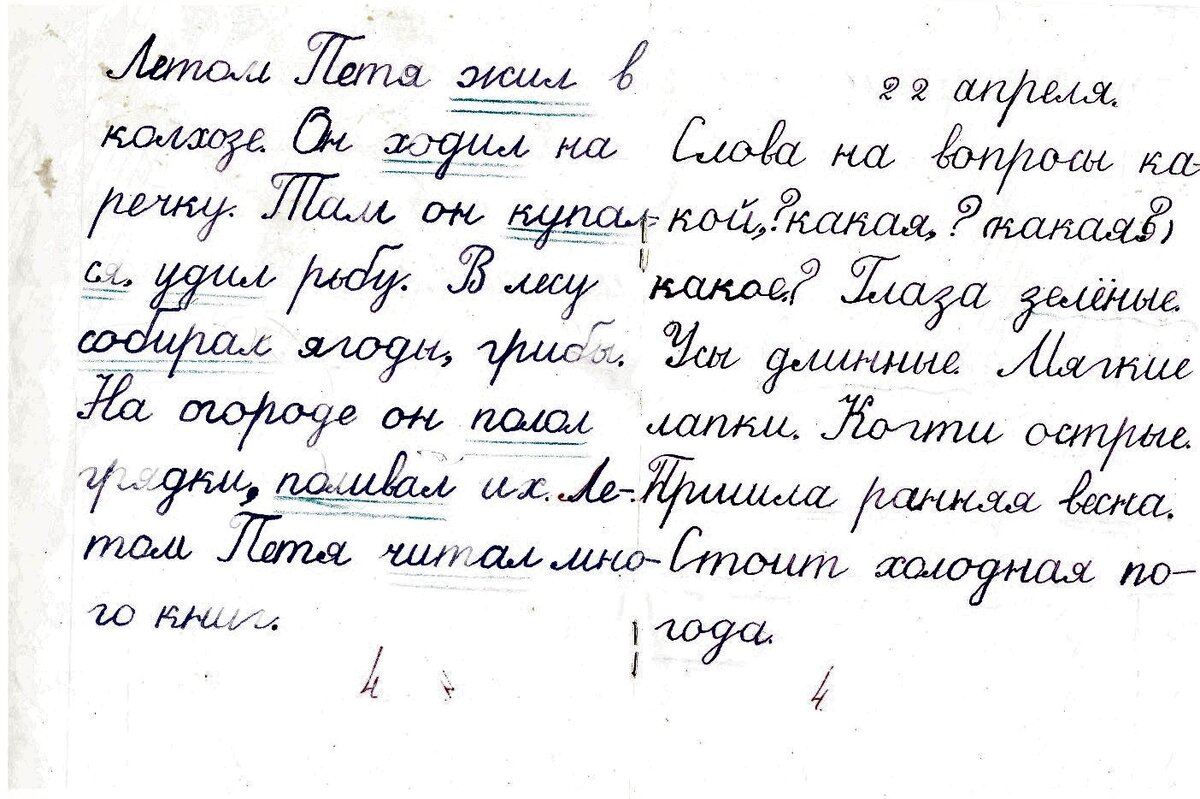 Летом Петя жил в
колхозе. Он ходил на
речку. Там он купал-
ся, удил рыбу. В лесу
собирал ягоды, грибы.
На огороде он полол
грядки, поливал их. Ле-
том Петя читал мно-
го книг.
4
22 апреля.
Слова на вопросы ка-
кой,? какая,? (какая?)
какое? Глаза зелёные.
Усы длинные. Мягкие
лапки. Когти острые.
Пришла ранняя весна.
Стоит холодная по-
года.
4